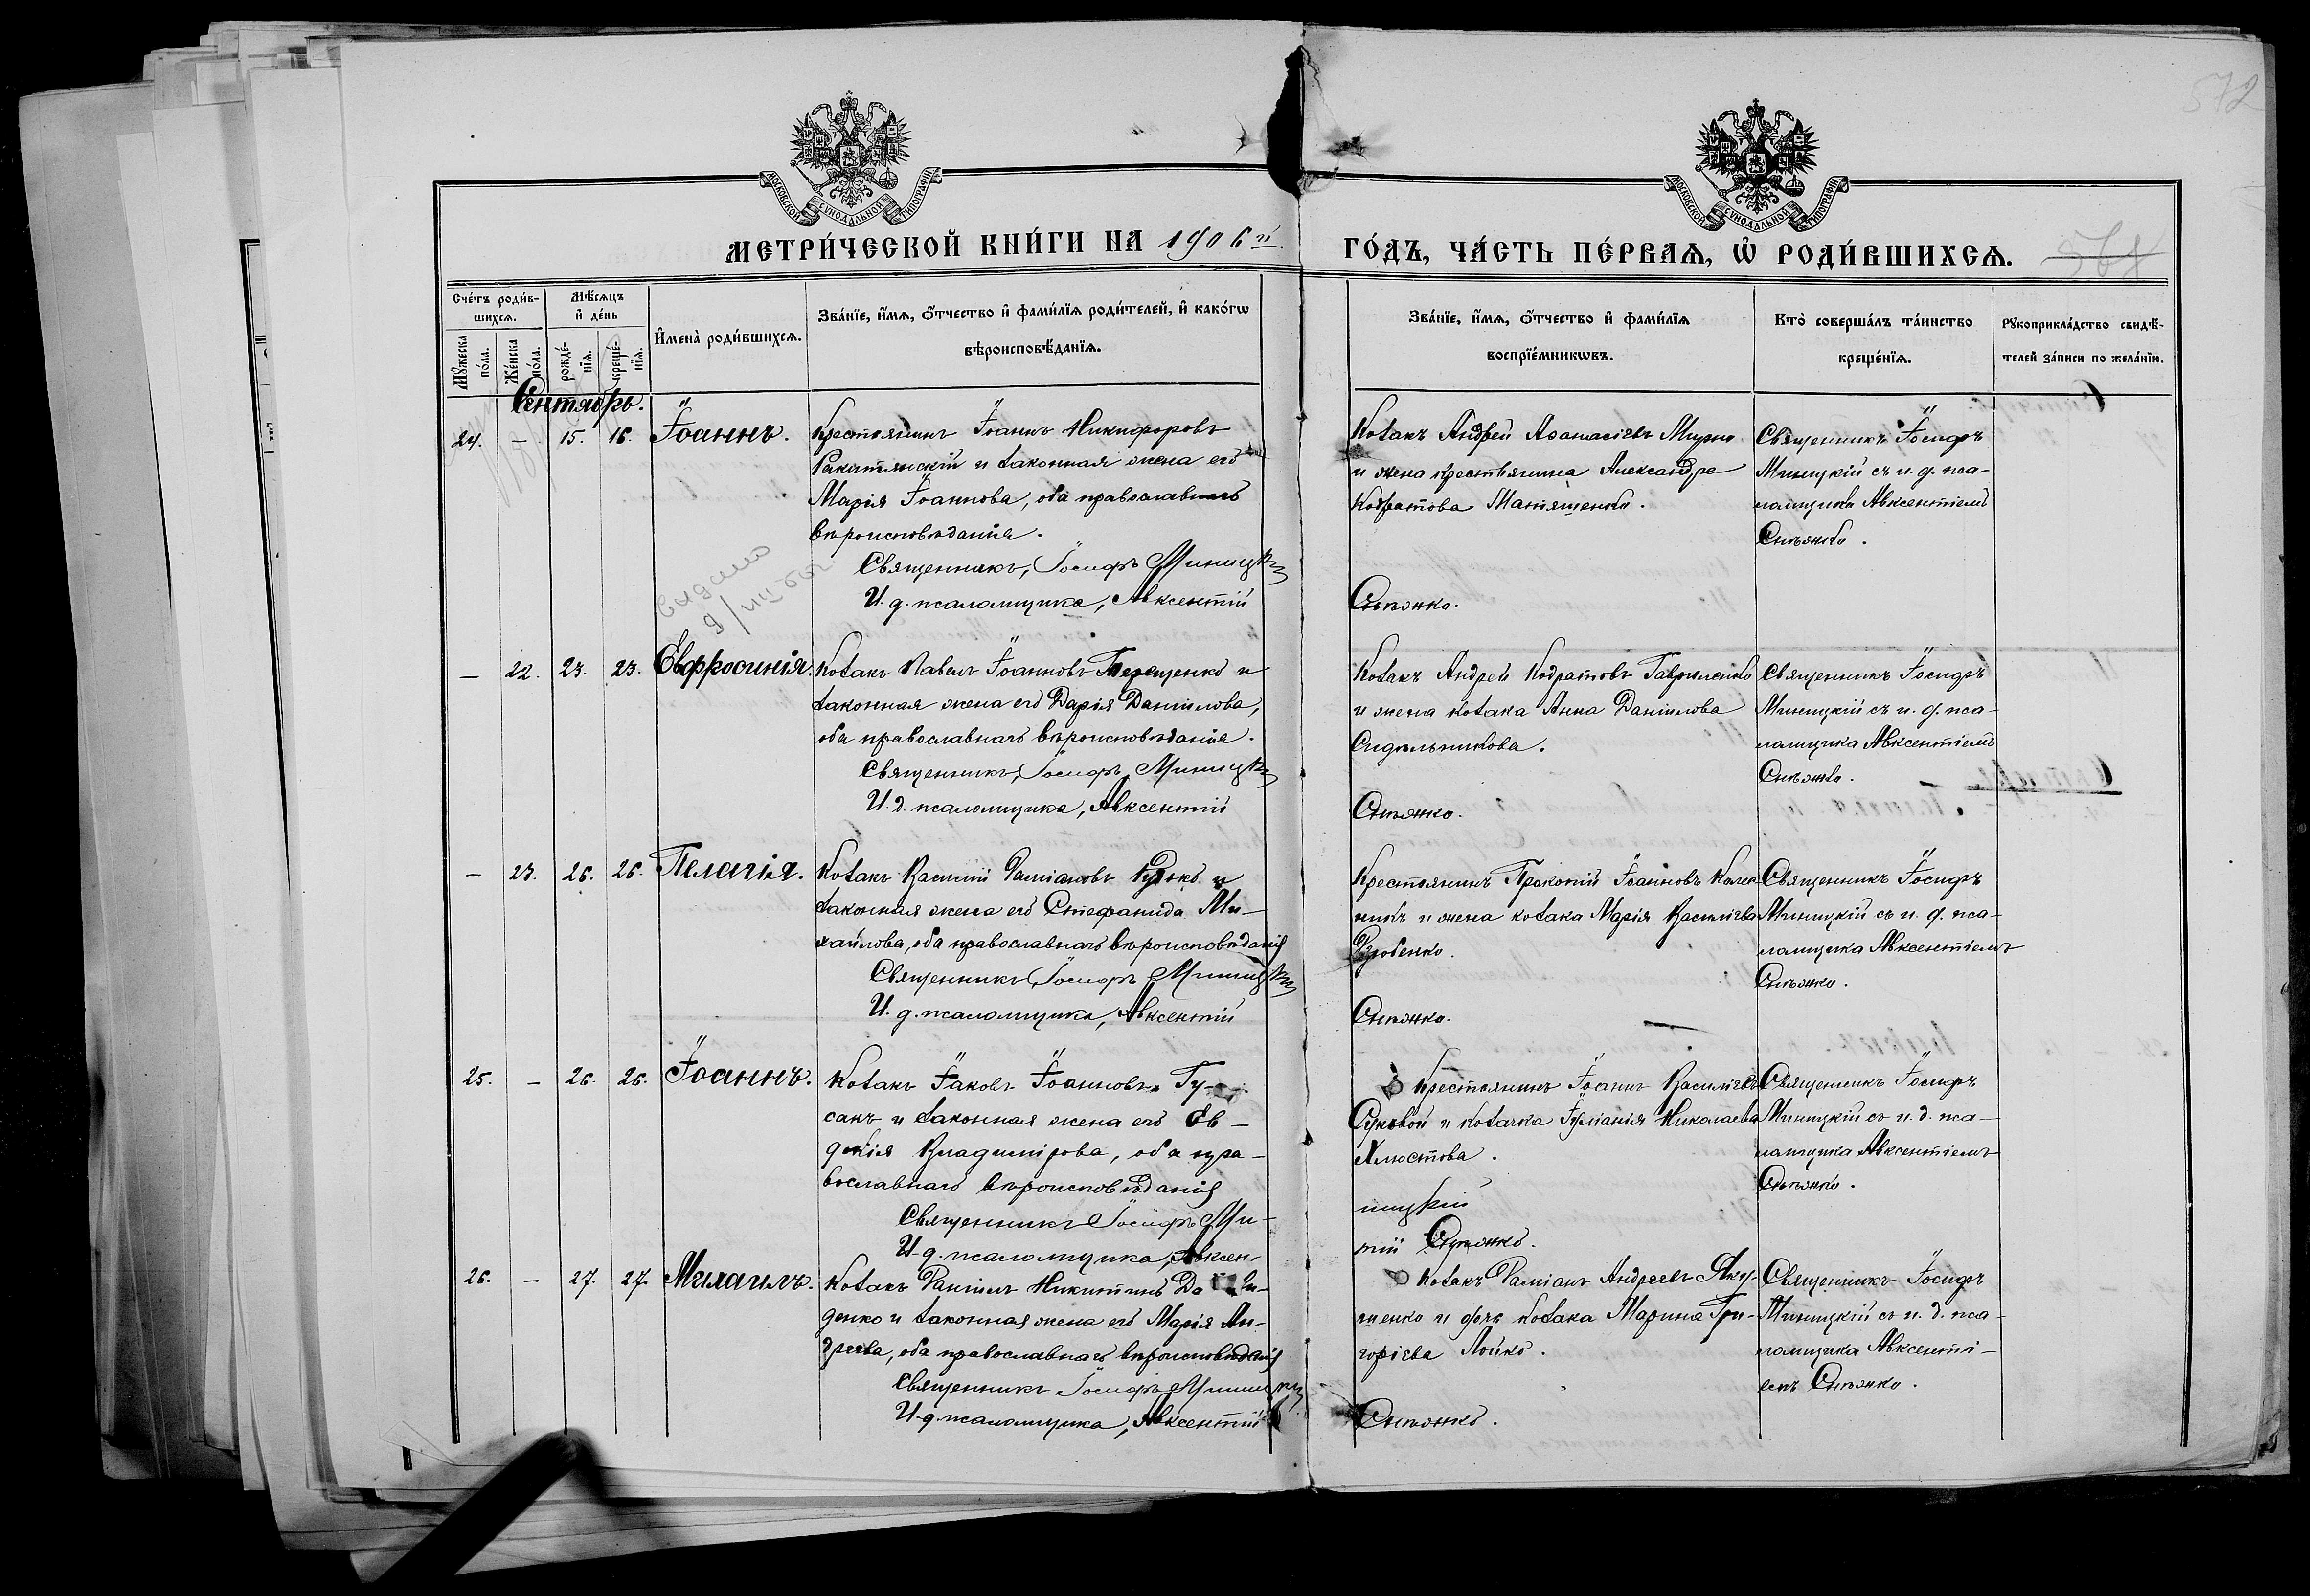 572
МОСКОВСКОЙ СѴНОДАЛЬНОЙ ТИПОГРАФІИ
МОСКОВСКОЙ СѴНОДАЛЬНОЙ ТИПОГРАФІИ
МЕТРИ́ЧЕСКОЙ КНИ́ГИ НА 1906 й.
ГО́ДЪ, ЧА́СТЬ ПЕ́РВАЯ, Ѽ РОДИ́ВШИХСЯ.
Сче́тъ роди́в-
шихся.
Мѣ́сяцъ
и҆ де́нь
Му́жеска
по́ла.
Же́нска
по́ла.
рожде́-
нїя.
креще́-
нїя.
И҆мена̀ роди́вшихся.
Зва́нїе, и҆́мя, ѻ҆́тчество и҆ фами́лїя роди́телей, и҆ како́гѡ
вѣроисповѣ́данїя.
Зва́нїе, и҆́мя, ѻ҆́тчество и҆ фами́лїя
воспрїе́мникѡвъ.
Кто̀ соверша́лъ та́инство
креще́нїя.
Рукоприкла́дство свидѣ́-
телей за́писи по жела́нїю.
Сентябрь.
24. — 15. 16. Іоаннъ.
Крестьянинъ Іоаннъ Никифоровъ
Ракитянскій и законная жена его
Марія Іоаннова, оба православнаго
вѣроисповѣданія.
Священникъ, Іосифъ Миницкій
И. д. псаломщика, Авксентій
Козакъ Андрей Аѳанасіевъ
и жена крестьянина Александра
Кодратова Матяшенко.
Снѣжко.
Священникъ Іосифъ
Миницкій съ и. д. пса-
ломщика Авксентіемъ
Снѣжко.
выдано
— 22. 23. 23. Евфросинія.
Козакъ Павелъ Іоанновъ Терещенко и
законная жена его Дарія Даніилова,
оба православнаго вѣроисповѣданія.
Священникъ, Іосифъ Миницкій
И. д. псаломщика, Авксентій
Козакъ Андрей Кодратовъ Гавриленко
и жена козака Анна Даніилова
Сидѣльникова.
Снѣжко.
Священникъ Іосифъ
Миницкій съ и. д. пса-
ломщика Авксентіемъ
Снѣжко.
— 23. 26. 26. Пелагія.
Козакъ Василій Даміановъ и
законная жена его Стефанида Ми-
хайлова, оба православнаго вѣроисповѣданія
Священникъ Іосифъ Миницкій
И. д. псаломщика, Авксентій
Крестьянинъ Прокопій Іоанновъ
и жена козака Марія Василіева
Снѣжко.
Священникъ Іосифъ
Миницкій съ и. д. пса-
ломщика Авксентіемъ
Снѣжко.
25. — 26. 26. Іоаннъ.
Козакъ Іаковъ Іоанновъ Гу-
сакъ и законная жена его Ев-
докія Владимірова, оба пра-
вославнаго вѣроисповѣданія
Священникъ Іосифъ Ми-
И. д. псаломщика, Авксен-
Крестьянинъ Іоаннъ Василіевъ
Суковой и козачка Іуліанія Николаева
Хлюстова.
ницкій
тій Снѣжко.
Священникъ Іосифъ
Миницкій съ и. д. пса-
ломщика Авксентіемъ
Снѣжко.
26. — 27. 27. Михаилъ.
Козакъ Даніилъ Никитинъ Дави-
денко и законная жена его Марія Ан-
дреева, оба православнаго вѣроисповѣданія
Священникъ Іосифъ Миницкій
И. д. псаломщика, Авксентій
Козакъ Даміанъ Андреевъ Яку-
шенко и дочь козака Марина Гри-
горіева Лойко.
Снѣжко.
Священникъ Іосифъ
Миницкій съ и. д. пса-
ломщика Авксенті-
емъ Снѣжко.